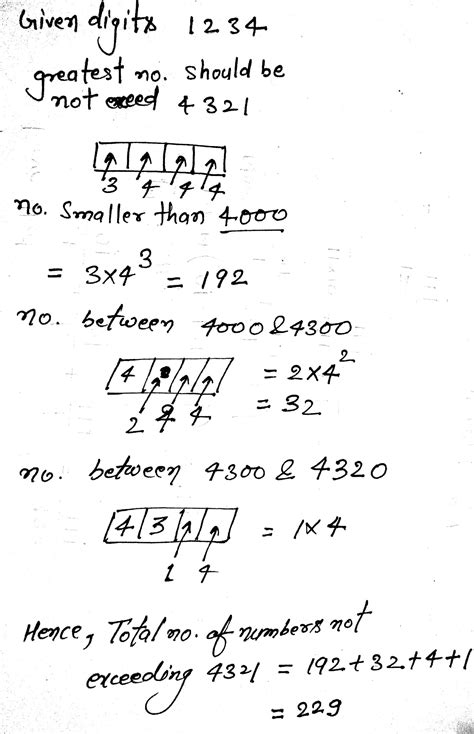 Given digits 1 2 3 4
greatest no. should be
not exceed 4321
3 4 4 4
no. Smaller than 4000
= 3×4³ = 192
no. between 4000 & 4300
4 = 2×4²
2 4 4 = 32
no. between 4300 & 4320
4 3 = 1×4
1 4
Hence, Total no. of numbers not
exceeding 4321 = 192+32+4+1
= 229